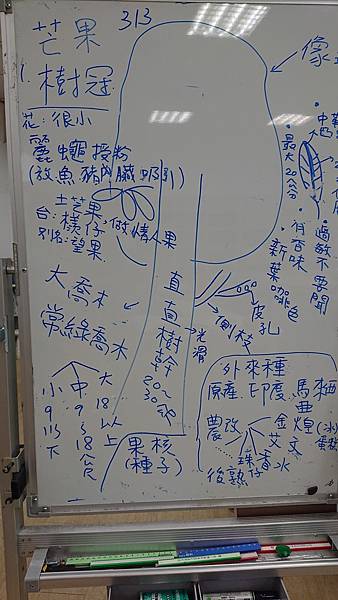 313
芒果
1. 樹冠
花：很小
麗蠅授粉
(放魚.豬內臟吸引)
土芒果
台：檨仔：做情人果
別名：望果
大喬木
常綠喬木
小 中 大
9 9 18
下 18 以上
公尺
直直樹幹
20~30
光滑
果核
(種子)
像
最大20公分
有香味
新葉咖啡色
過敏不要聞
中
皮孔
側枝
外來種
原產 印度 馬來西亞
農改
金煌
艾文
香水
珠仔
後熟